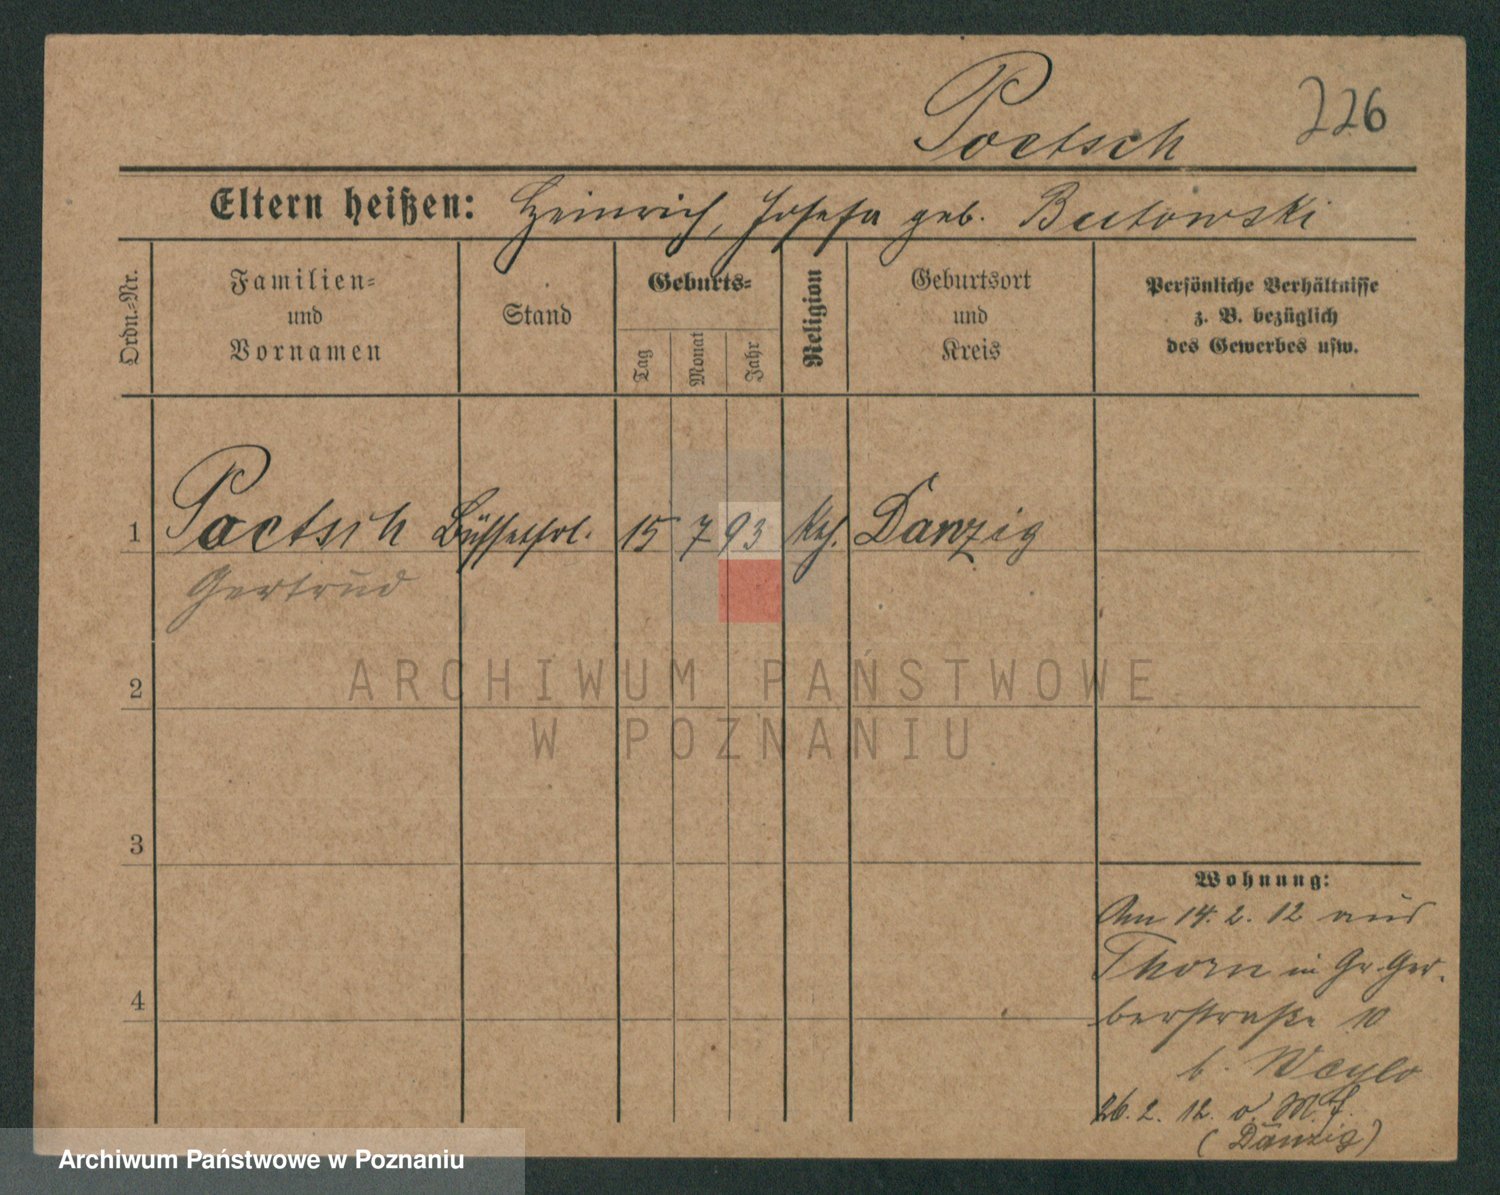 226
Poetsch
Eltern heißen: Heinrich, Josefa geb. Butowski
Ordn.-Nr.
Familien-
und
Vornamen
Stand
Geburts-
Tag
Monat
Jahr
Religion
Geburtsort
und
Kreis
Persönliche Verhältnisse
z. B. bezüglich
des Gewerbes usw.
1 Poetsch Büffetfrl. 15 7 93 kth. Danzig
Gertrud
2
3
4
Wohnung:
Am 14. 2. 12 aus
Thorn in Gr. Ger-
berstraße 10
b.
26. 2. 12.
(Danzig)
ARCHIWUM PAŃSTWOWE
W POZNANIU
Archiwum Państwowe w Poznaniu